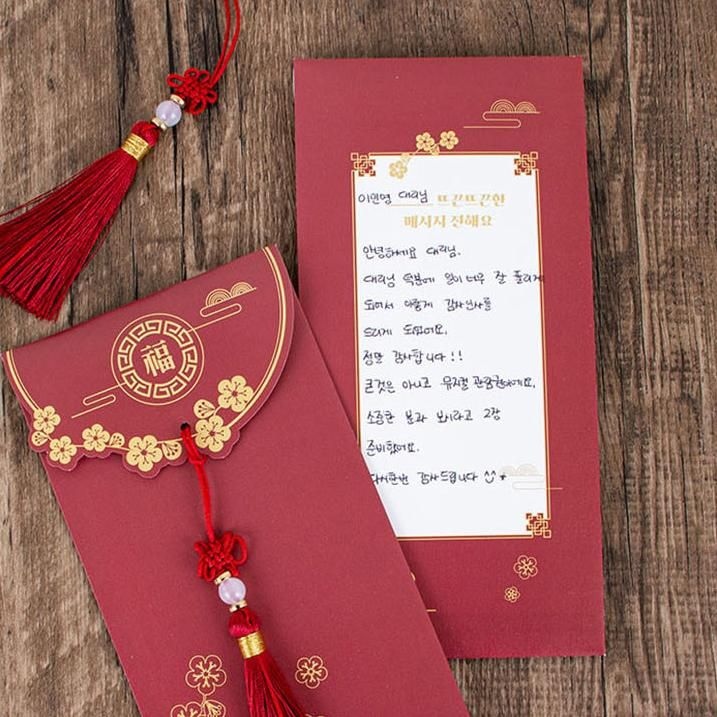 福
이민영 대리님 뜨끈뜨끈한
메시지 전해요
안녕하세요 대리님.
대리님 덕분에 일이 너무 잘 풀리게
되어서 이렇게 감사인사를
드리게 되었어요.
정말 감사합니다!!
큰것은 아니고 뮤지컬 관람권이에요.
소중한 분과 보시라고 2장
준비했어요.
다시한번 감사드립니다